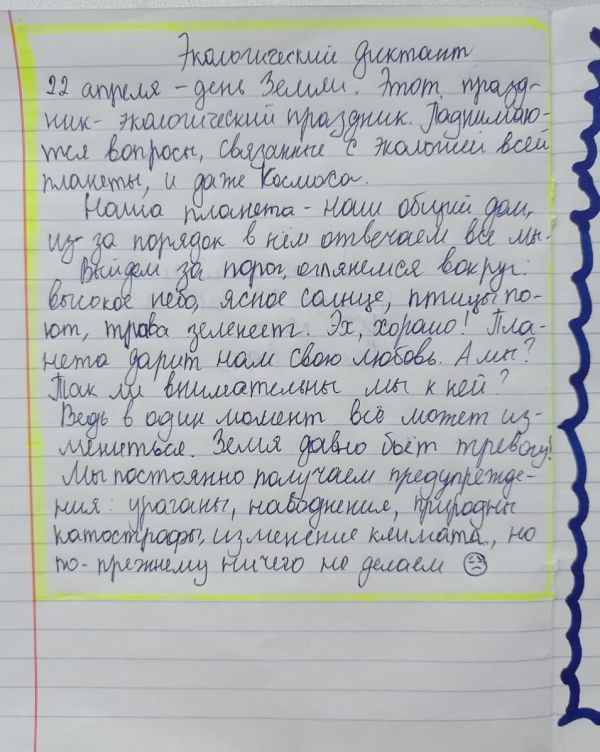 Экологический диктант
22 апреля – день Земли. Этот празд-
ник - экологический праздник. Паднимаю-
тся вопросы, связанные с экологией всей
планеты, и даже Космоса.
Наша планета - наш общий дом,
из- за порядок в нём отвечаем все мы.
Выйдем за порог, оглянемся вокруг:
высокое небо, ясное солнце, птицы по-
ют, трава зеленеет. Эх, хорошо! Пла-
нета дарит нам свою любовь. А мы?
Так ли внимательны мы к ней?
Ведь в один момент всё может из-
мениться. Земля давно бьёт тревогу!
Мы постоянно получаем предупрежде-
ния: ураганы, наводнения, природны
катострофы, изменение климата, но
по- прежнему ничего не делаем